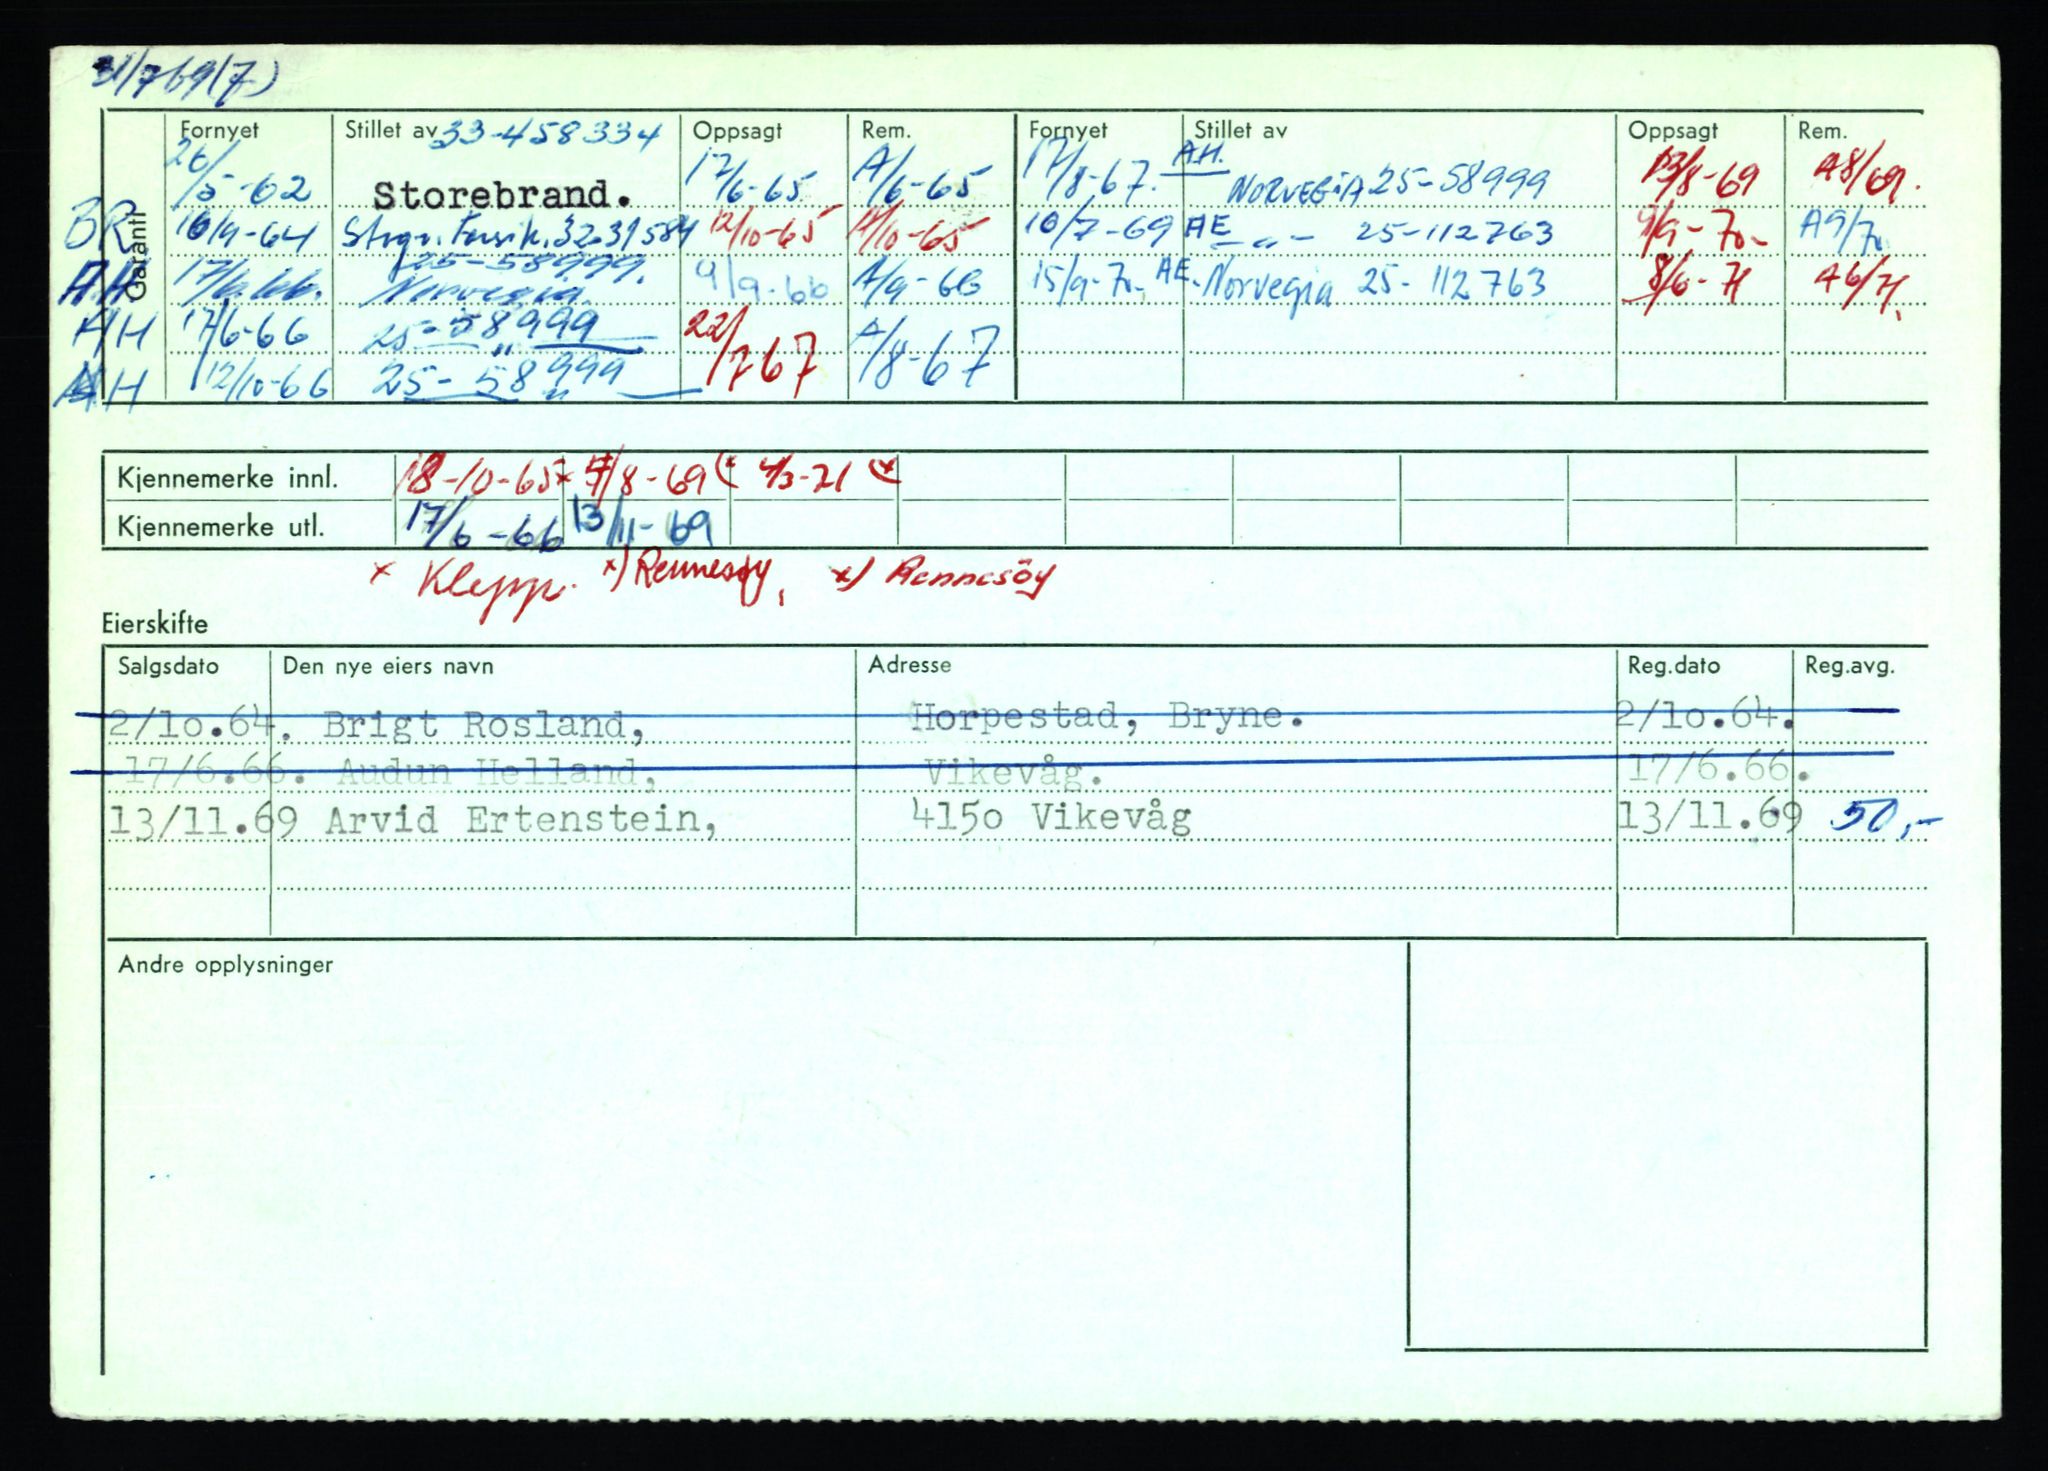 31/7 69(7)
Garanti
Fornyet Stillet av 33-458334 Oppsagt Rem. Fornyet Stillet av Oppsagt Rem.
26/5-62 Storebrand. 17/6-65 A/6-65 17/8-67. A.H. NORVEGIA 25-58999 13/8-69 A8/69.
BR 10/9-64 32.31584 12/10-65 A/10-65 10/7-69 AE - " - 25-112763 9/9-70- A9/70
AH 17/6.66. 25-58999. Norvegia 9/9-66 A/9-66 15/9-70- AE. Norvegia 25-112763 8/6-71 A6/71.
AH 17/6-66 25-58999 " 22/7-67 A/8-67
AH 12/10-66 25-58999 "
Kjennemerke innl. 18-10-65 x /8-69 (x 4/3-71 (x
Kjennemerke utl. 17/6-66 13/11-69
x Klepp. x) Rennesøy, x) Rennesöy
Eierskifte
Salgsdato Den nye eiers navn Adresse Reg.dato Reg.avg.
2/1o.64. Brigt Rosland, Horpestad, Bryne. 2/1o.64.
17/6.66. Audun Helland, Vikevåg. 17/6.66.
13/11.69 Arvid Ertenstein, 415o Vikevåg 13/11.69 50,-
Andre opplysninger